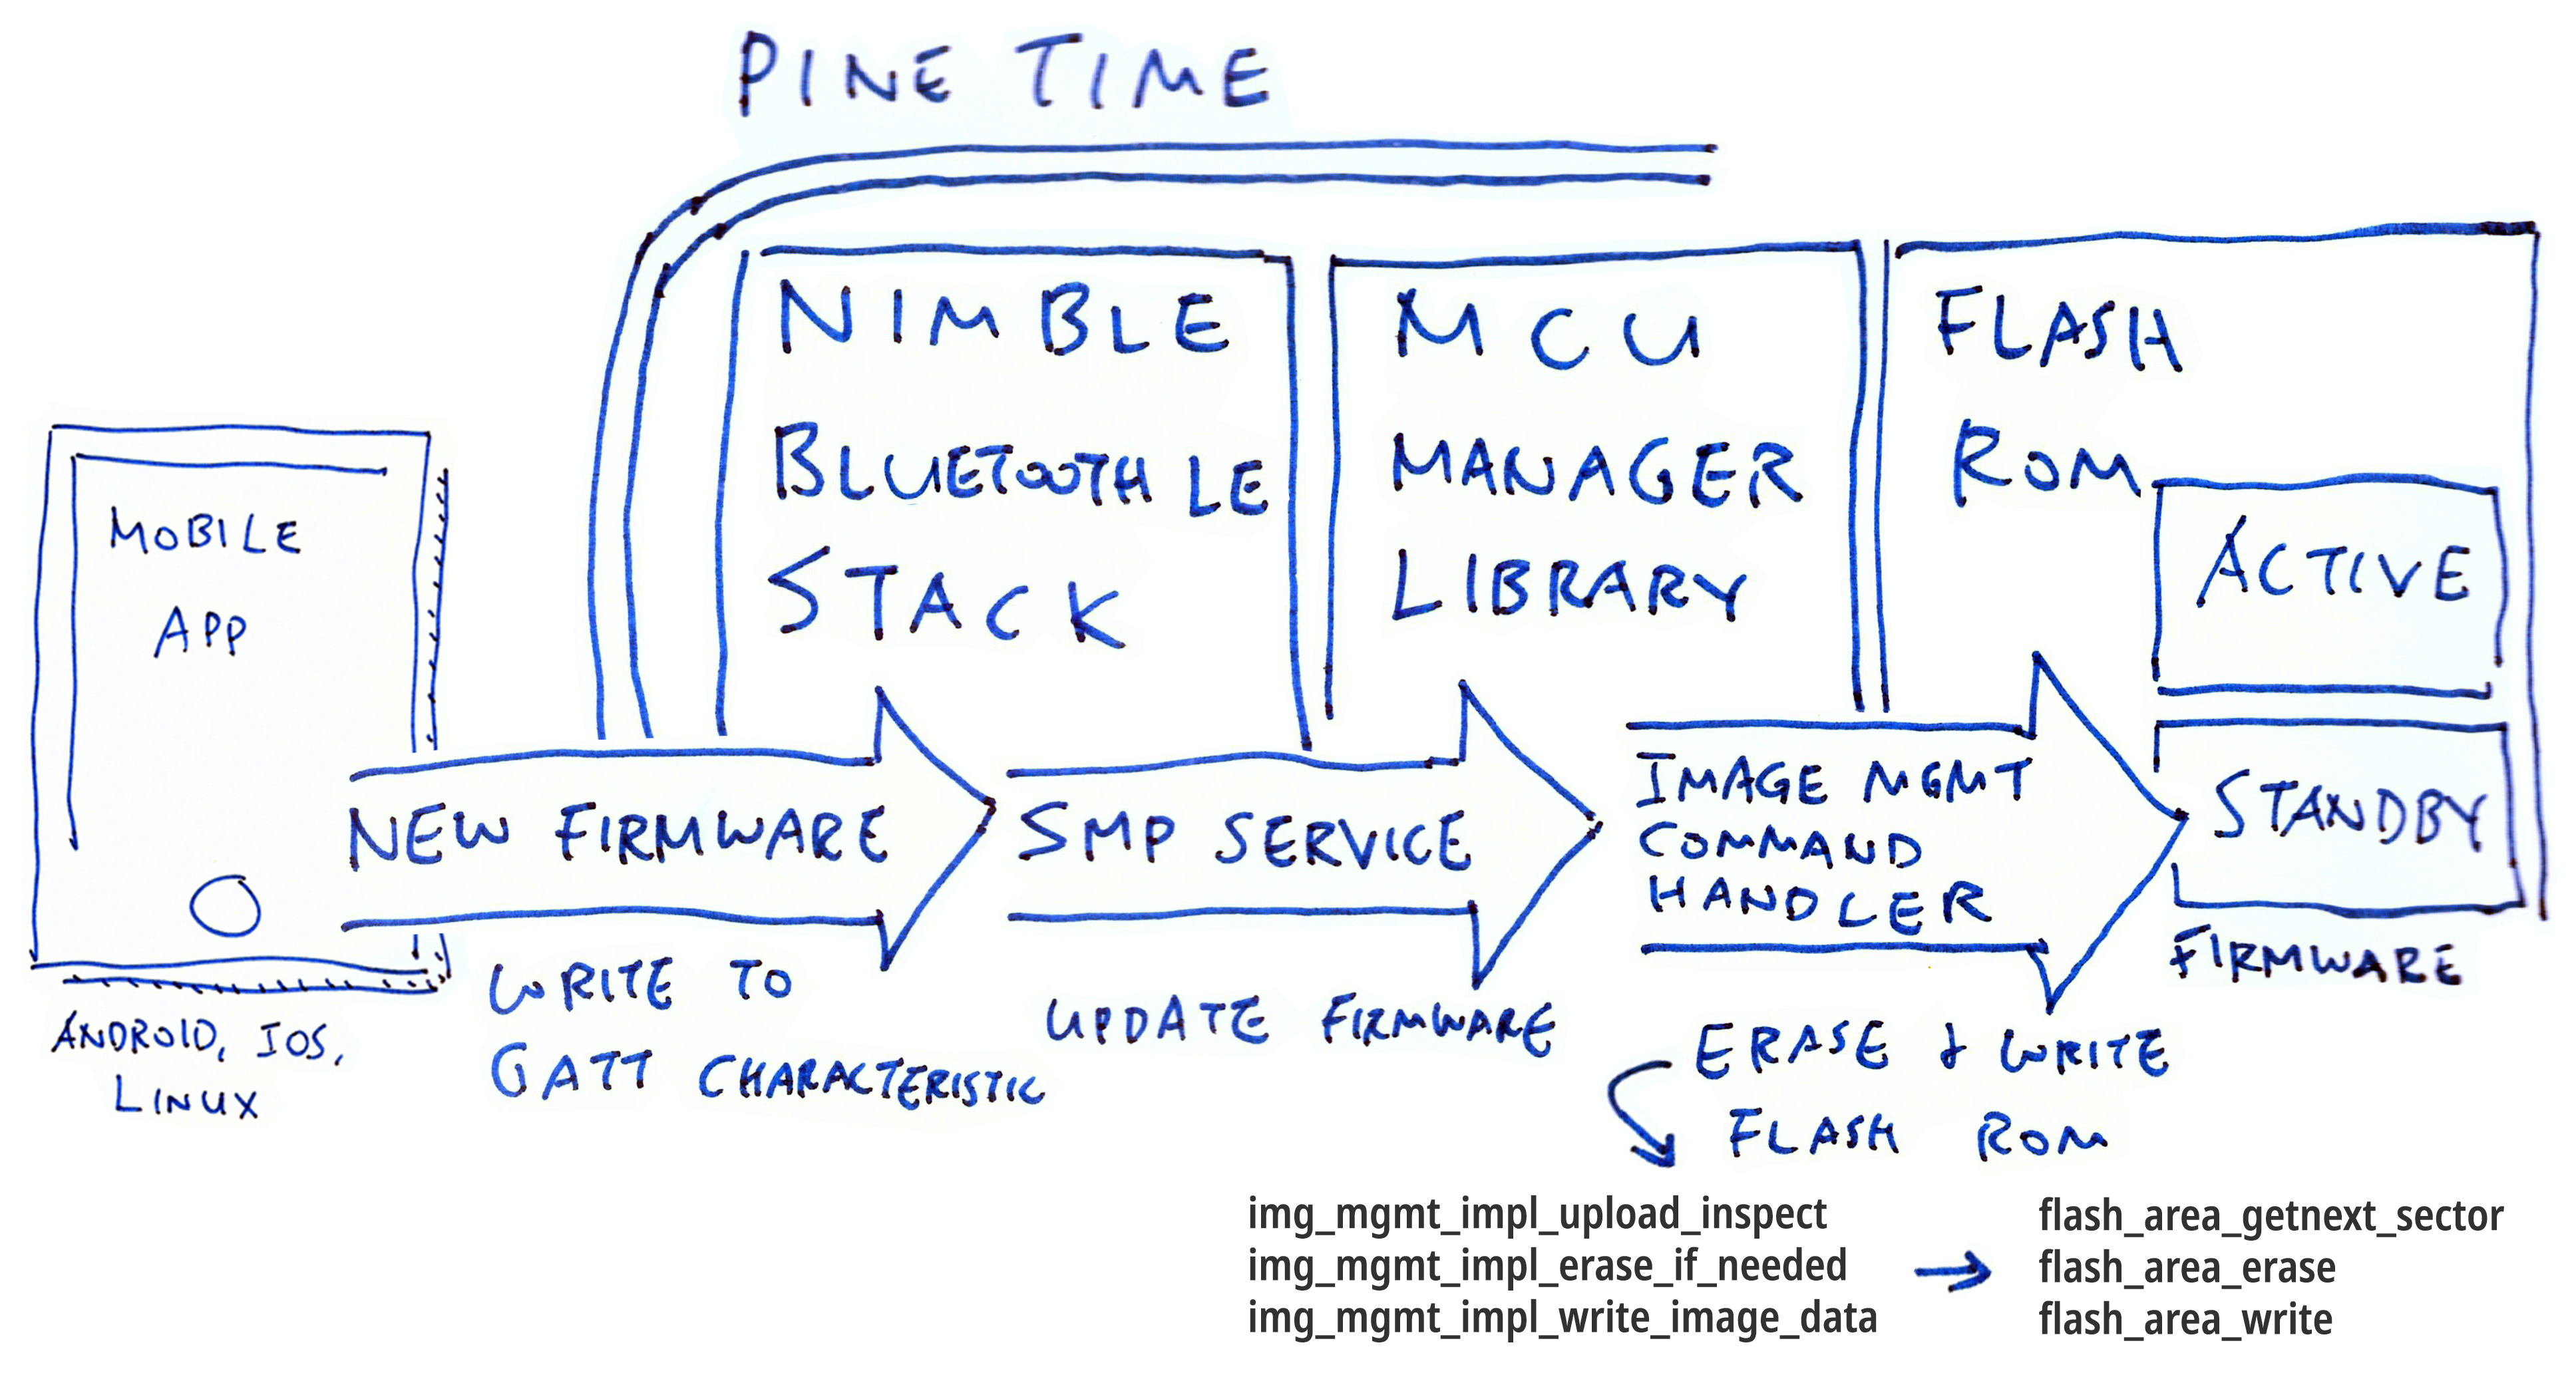 PINE TIME
NIMBLE
BLUETOOTH LE
STACK
MCU
MANAGER
LIBRARY
FLASH
ROM
ACTIVE
STANDBY
FIRMWARE
MOBILE
APP
ANDROID, IOS,
LINUX
NEW FIRMWARE
WRITE TO
GATT CHARACTERISTIC
SMP SERVICE
UPDATE FIRMWARE
IMAGE MGMT
COMMAND
HANDLER
ERASE & WRITE
FLASH ROM
img_mgmt_impl_upload_inspect
img_mgmt_impl_erase_if_needed
img_mgmt_impl_write_image_data
flash_area_getnext_sector
flash_area_erase
flash_area_write